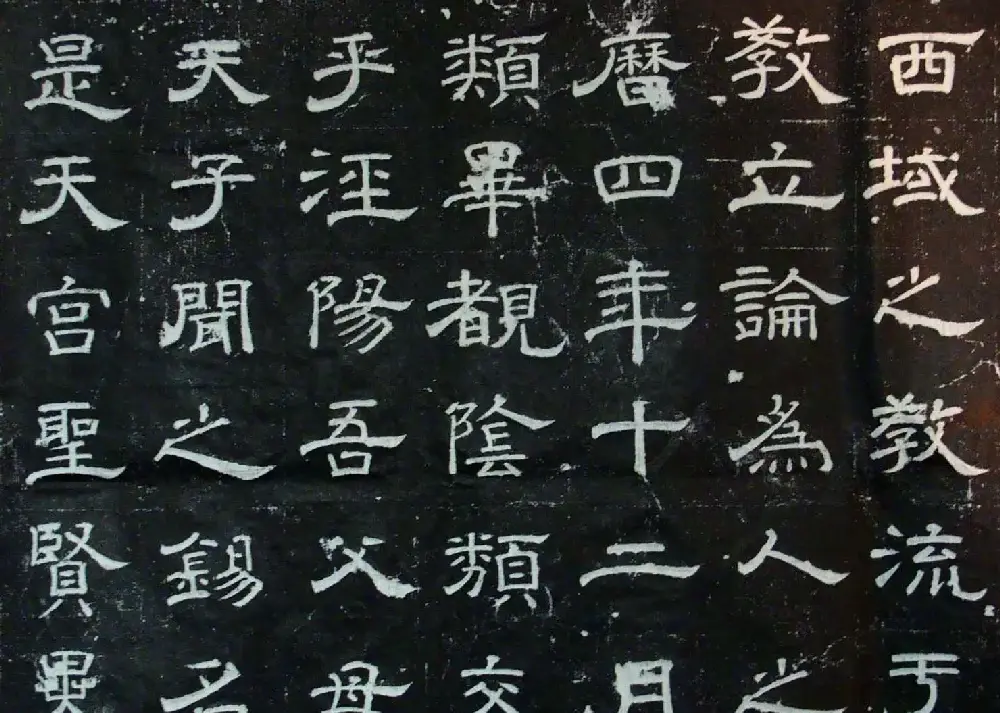 西域之教流于
教立論為人之
曆四年十二月
類畢覩陰類交
乎涇陽吾父母
天子聞之錫名
是天宮聖賢異